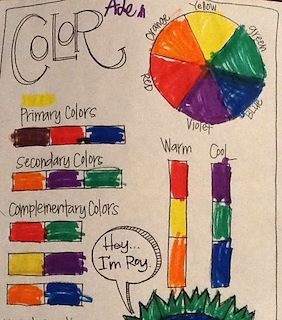 COLOR
Yellow
Orange
Green
Red
Blue
Violet
Primary Colors
Secondary Colors
Complementary Colors
Warm
Cool
Hey...
I'm Roy.